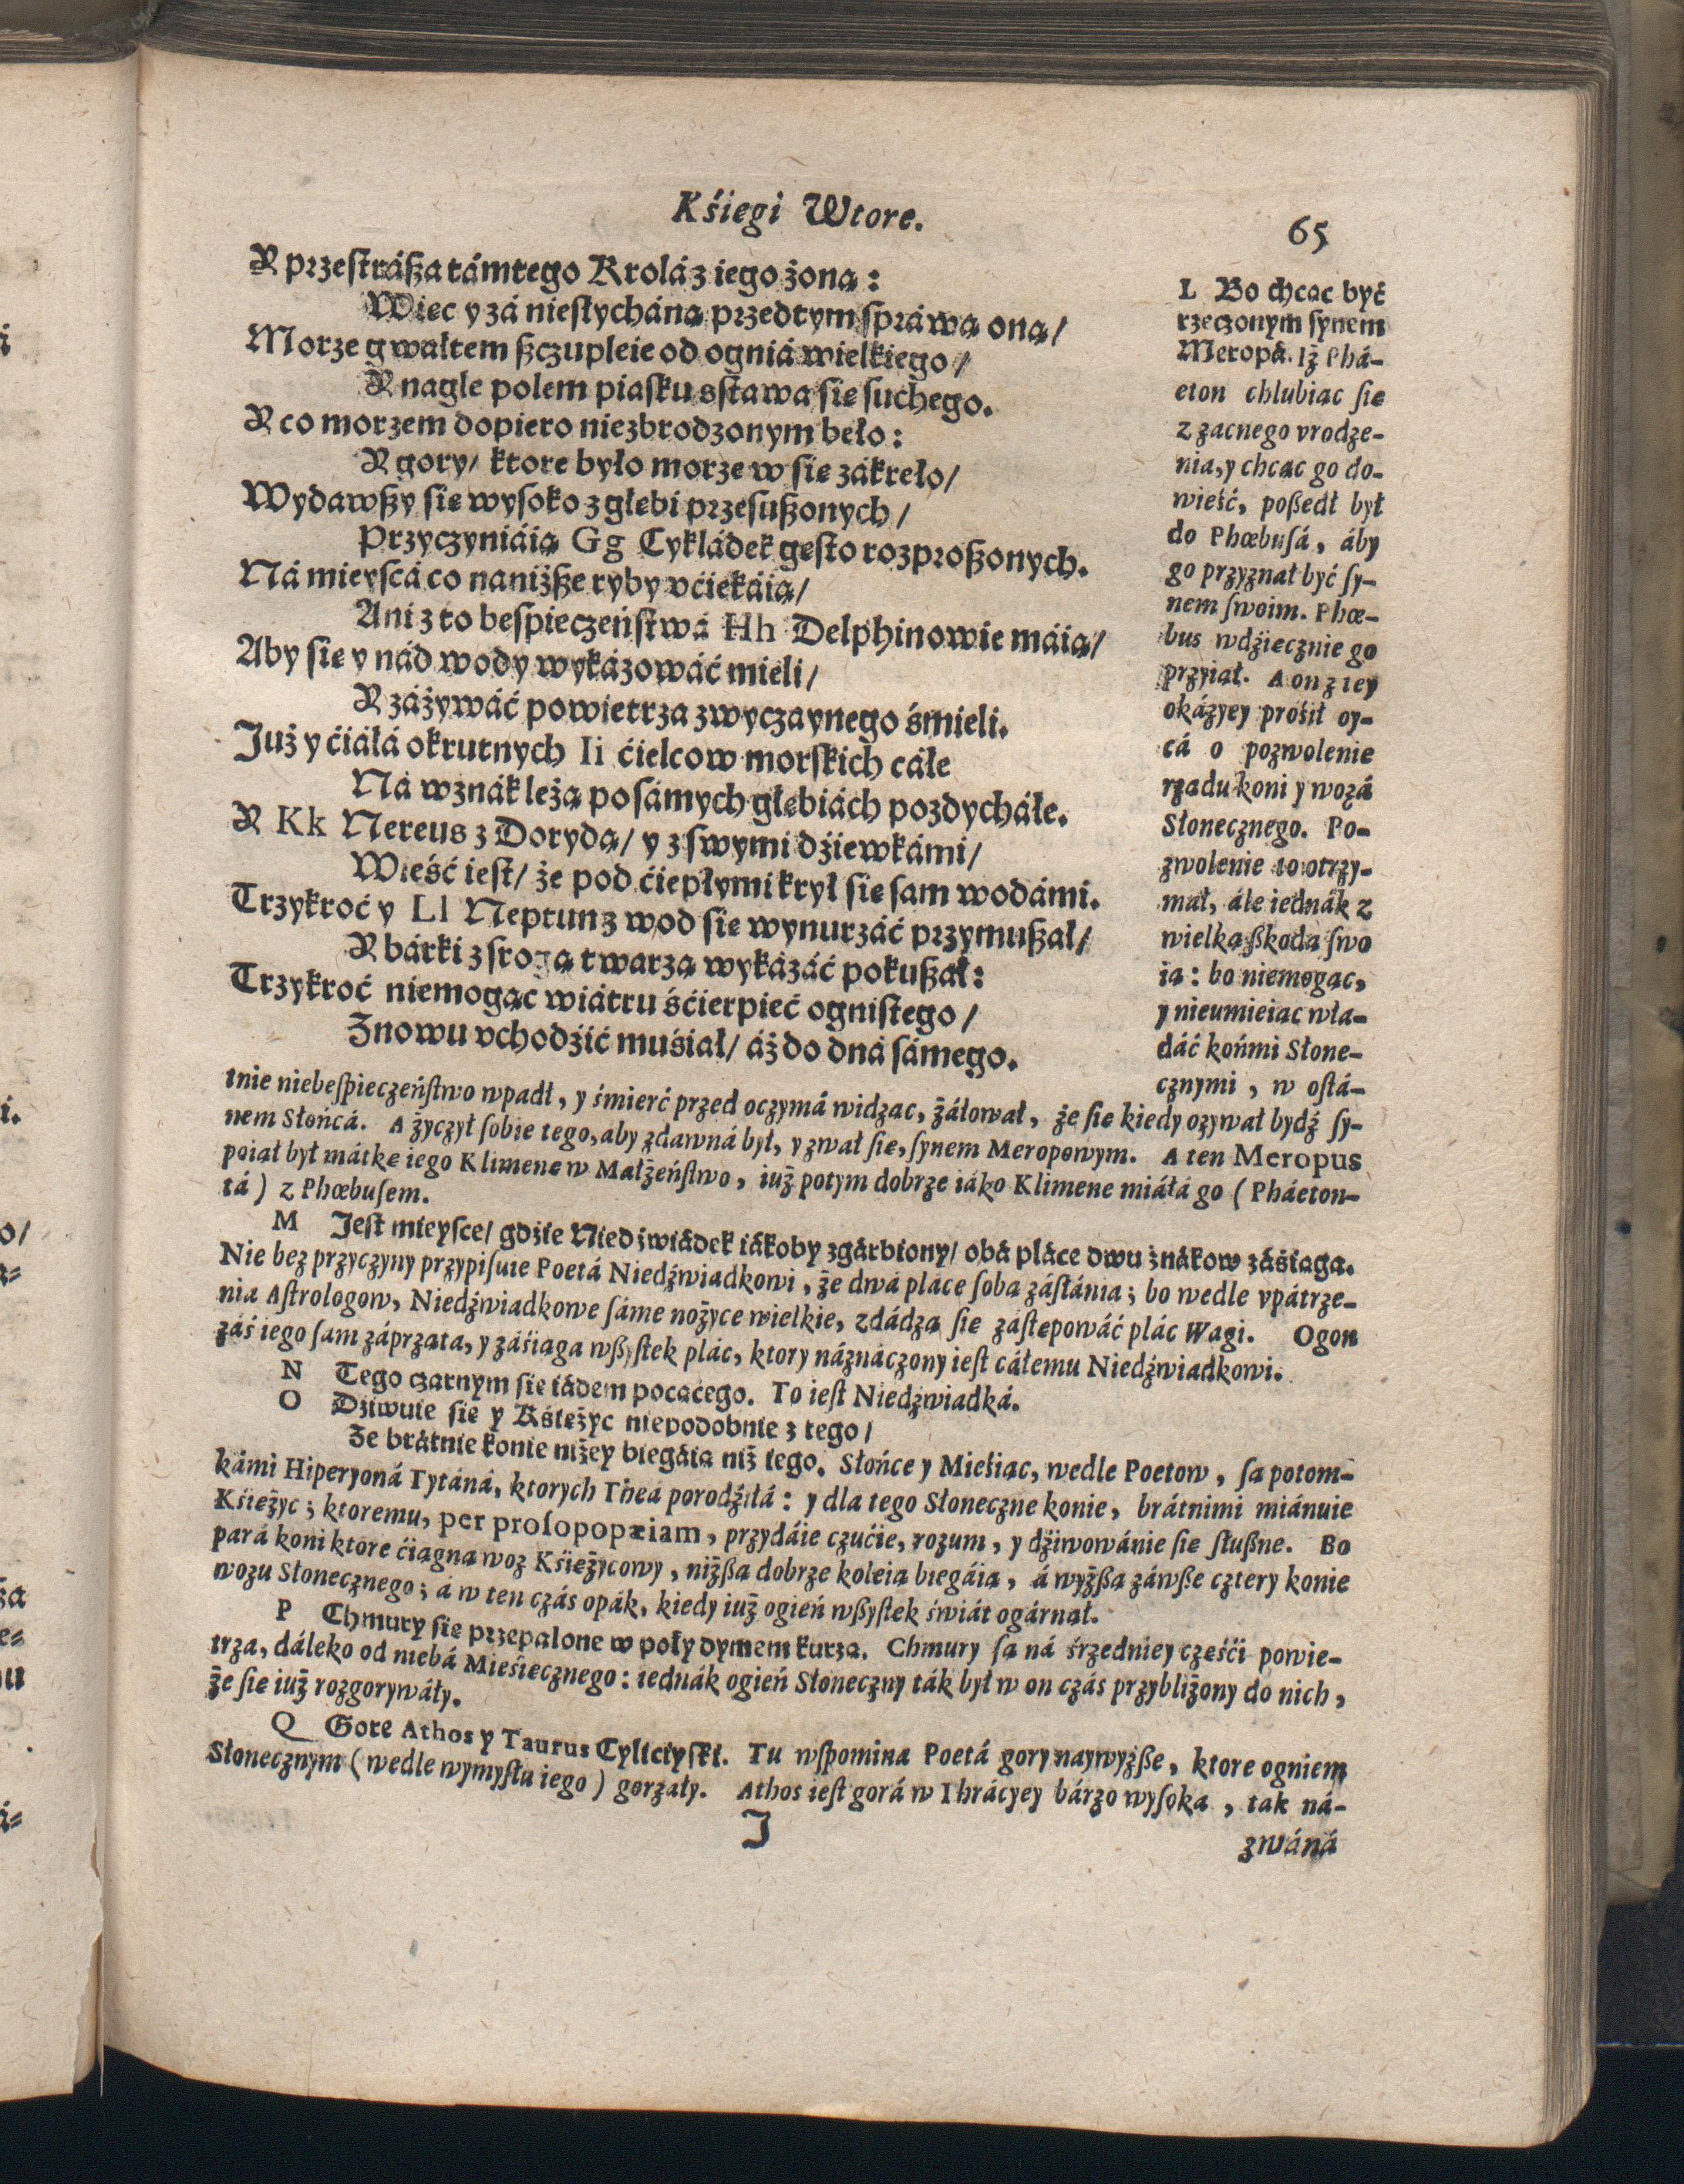 Kśięgi Wtore.
65
Y przestráßa támtego Krolá z iego żoną:
Więc y zá niesłycháną przedtym spráwą oną/
Morze gwałtem ßczupleie od ogniá wielkiego/
Y nagle polem piasku sstawa się suchego.
Y co morzem dopiero niezbrodzonym beło:
Y gory/ ktore było morze w się zákreło/
Wydawßy się wysoko z głębi przesußonych/
Przyczyniáią Gg Cykládek gęsto rozproßonych.
Ná mieyscá co naniżße ryby vćiekáią/
Ani z to bespieczeństwá Hh Delphinowie máią/
Aby się y nád wody wykázowáć mieli/
Y záżywáć powietrza zwyczaynego śmieli.
Już y ćiáłá okrutnych Ii ćielcow morskich cáłe
Ná wznák leżą po sámych głębiách pozdycháłe.
Y Kk Nereus z Dorydą/ y z swymi dźiewkámi/
Wieść iest/ że pod ćiepłymi krył się sam wodámi.
Trzykroć y Ll Neptun z wod się wynurzáć przymußał/
Y bárki z srogą twarzą wykázáć pokußał:
Trzykroć niemogąc wiátru śćierpieć ognistego/
Znowu vchodźić muśiał/ áż do dná sámego.
L Bo chcąc być
rzeczonym synem
Meropá. Iż Phá-
eton chlubiąc się
z zacnego vrodze-
nia, y chcąc go do-
wieść, poßedł był
do Phœbusá, áby
go przyznał być sy-
nem swoim. Phœ-
bus wdźięcznie go
przyiął. A on z iey
okázyey prośił oy-
cá o pozwolenie
rządu koni y wozá
Słonecznego. Po-
zwolenie to otrzy-
mał, ále iednák z
wielką ßkodą swo
ią: bo niemogąc,
y nieumieiąc wła-
dáć końmi Słone-
cznymi, w ostá-
tnie niebespieczeństwo wpadł, y śmierć przed oczymá widząc, żáłował, że się kiedy ozywał bydź sy-
nem Słońcá. A życzył sobie tego, aby zdawná był, y zwał się, synem Meropowym. A ten Meropus
poiął był mátkę iego Klimenę w Małżeństwo, iuż potym dobrze iáko Klimene miáłá go (Pháeton-
tá) z Phœbusem.
M Jest mieysce/ gdźie Niedźwiádek iákoby zgárbiony/ obá pláce dwu znákow záśiągá.
Nie bez przyczyny przypisuie Poetá Niedźwiadkowi, że dwá pláce sobą zástánia; bo wedle vpátrze-
nia Astrologow, Niedźwiadkowe sáme nożyce wielkie, zdádzą się zástępowáć plác Wagi. Ogon
záś iego sam záprząta, y záśiąga wßystek plác, ktory náznáczony iest cáłemu Niedźwiadkowi.
N Tego czarnym się iádem pocącego. To iest Niedzwiadká.
O Dźiwuie się y Kśiężyc niepodobnie z tego/
Że brátnie konie niżey biegáią niż iego. Słońce y Mieśiąc, wedle Poetow, są potom-
kámi Hiperyoná Tytáná, ktorych Thea porodźiłá: y dla tego Słoneczne konie, brátnimi miánuie
Kśiężyc; ktoremu, per prosopopæiam, przydáie czućie, rozum, y dźiwowánie się słußne. Bo
pará koni ktore ćiągną woz Kśiężycowy, niżßą dobrze koleią biegáią, á wyżßą záwße cztery konie
wozu Słonecznego; á w ten czás opák, kiedy iuż ogień wßystek świát ogárnął.
P Chmury się przepalone w poły dymem kurzą. Chmury są ná śrzedniey częśći powie-
trza, dáleko od niebá Mieśięcznego: iednák ogień Słoneczny ták był w on czás przybliżony do nich,
że się iuż rozgorywáły.
Q Gore Athos y Taurus Cyliciyski. Tu wspomina Poetá gory naywyżße, ktore ogniem
Słonecznym (wedle wymysłu iego) gorzały. Athos iest gorá w Thrácyey bárzo wysoka, tak ná-
J
zwáná